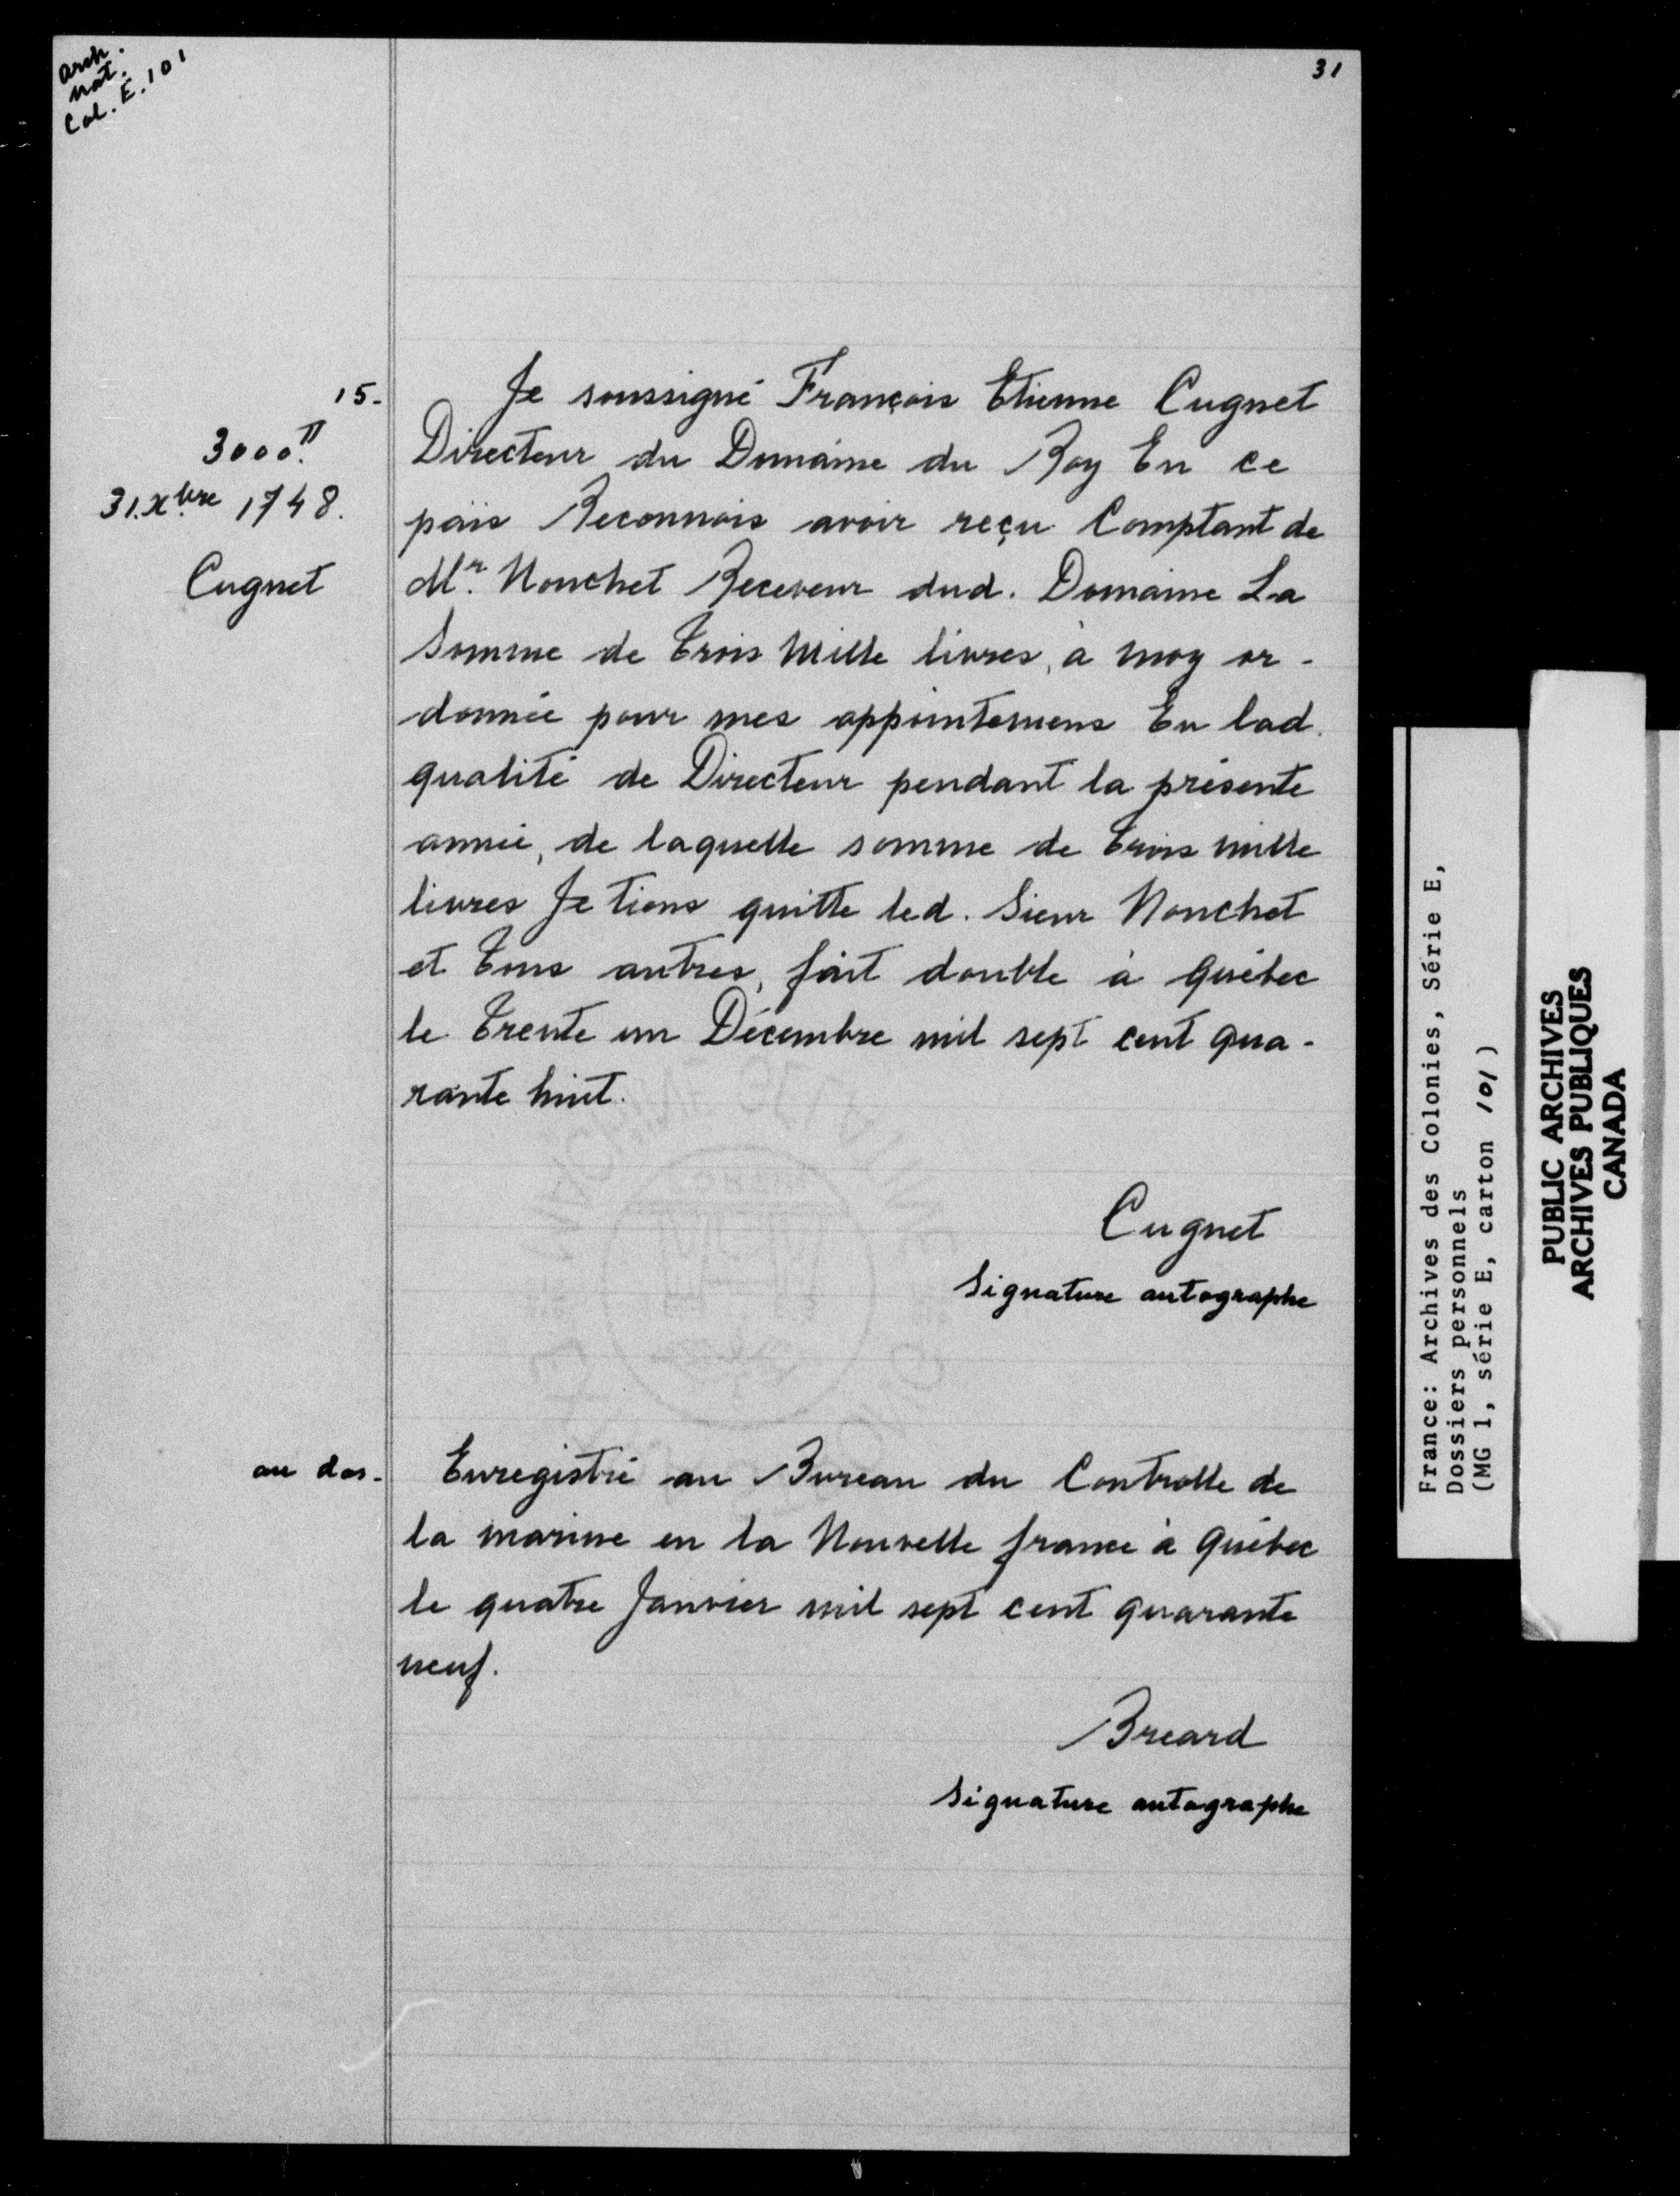 arch.
nat.
Col. E. 101
31
15.
3000.tt
31. Xbre 1748.
Cugnet
Je soussigné François Etienne Cugnet
Directeur du Domaine du Roy En ce
païs Reconnois avoir reçu Comptant de
Mr. Nouchet Receveur dud. Domaine La
Somme de trois Mille livres, à moy or-
donnée pour mes appointemens En lad.
qualité de Directeur pendant la présente
année, de laquelle somme de trois mille
livres Je tiens quitte led. Sieur Nouchet
et tous autres, fait double à Québec
le trente un Décembre mil sept cent qua-
rante huit.
Cugnet
Signature autographe
au dos.
Enregistré au Bureau du Controlle de
la marine en la Nouvelle france à Québec
le quatre Janvier mil sept cent quarante
neuf.
Breard
Signature autographe
France: Archives des Colonies, Série E,
Dossiers personnels
(MG 1, série E, carton 101)
PUBLIC ARCHIVES
ARCHIVES PUBLIQUES
CANADA